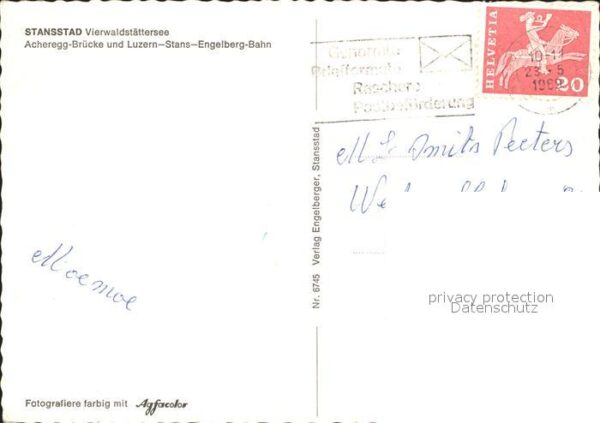 STANSSTAD Vierwaldstättersee
Acheregg-Brücke und Luzern—Stans—Engelberg-Bahn
Genormte
Briefformate
Raschere
Postbeförderung
HELVETIA
20
10-11
23
5
Smits Peeters
Moemoe
Nr. 6745 Verlag Engelberger, Stansstad
privacy protection
Datenschutz
Fotografiere farbig mit Agfacolor